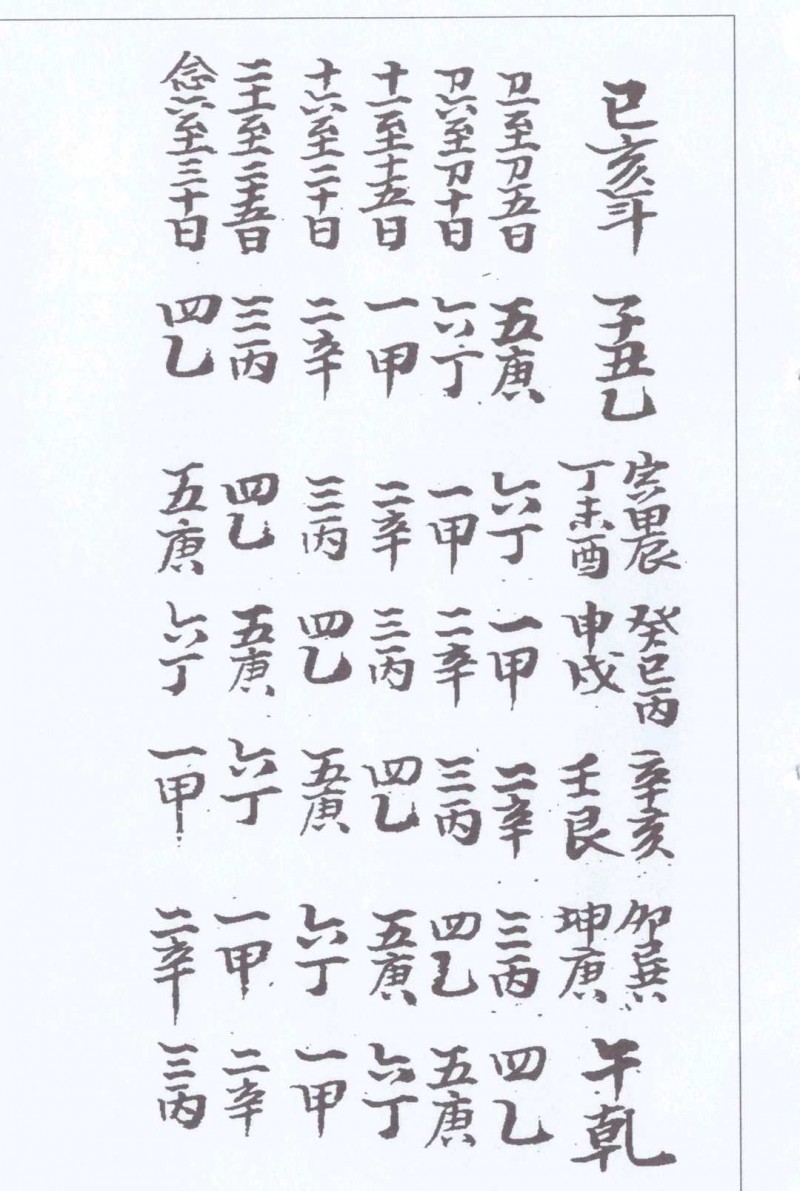 己亥年 子丑乙 寅甲辰丁未酉 癸巳丙申戌 辛亥壬艮 卯巽坤庚 午乾
刀一至刀五日 五庚 六丁 一甲 二辛 三丙 四乙
刀六至刀十日 六丁 一甲 二辛 三丙 四乙 五庚
十一至十五日 一甲 二辛 三丙 四乙 五庚 六丁
十六至二十日 二辛 三丙 四乙 五庚 六丁 一甲
二十一至二十五日 三丙 四乙 五庚 六丁 一甲 二辛
念六至三十日 四乙 五庚 六丁 一甲 二辛 三丙